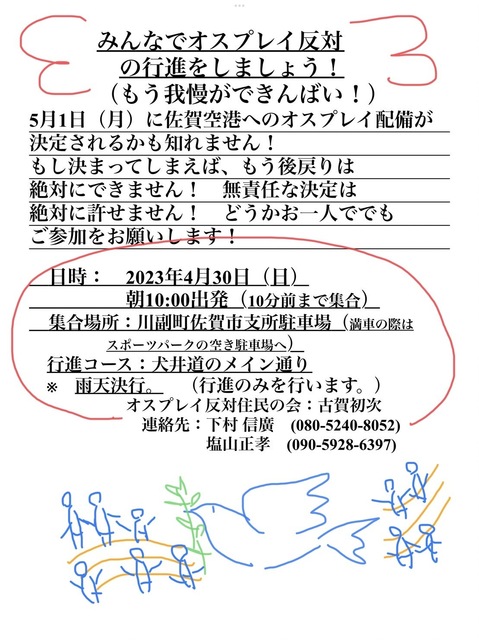 みんなでオスプレイ反対
の行進をしましょう！
（もう我慢ができんばい！）
5月1日（月）に佐賀空港へのオスプレイ配備が
決定されるかも知れません！
もし決まってしまえば、もう後戻りは
絶対にできません！　無責任な決定は
絶対に許せません！　どうかお一人ででも
ご参加をお願いします！
日時：　2023年4月30日（日）
朝10:00出発（10分前まで集合）
集合場所：川副町佐賀市支所駐車場（満車の際は
スポーツパークの空き駐車場へ）
行進コース：犬井道のメイン通り
※　雨天決行。　（行進のみを行います。）
オスプレイ反対住民の会：古賀初次
連絡先：下村 信廣　(080-5240-8052)
塩山正孝　(090-5928-6397)